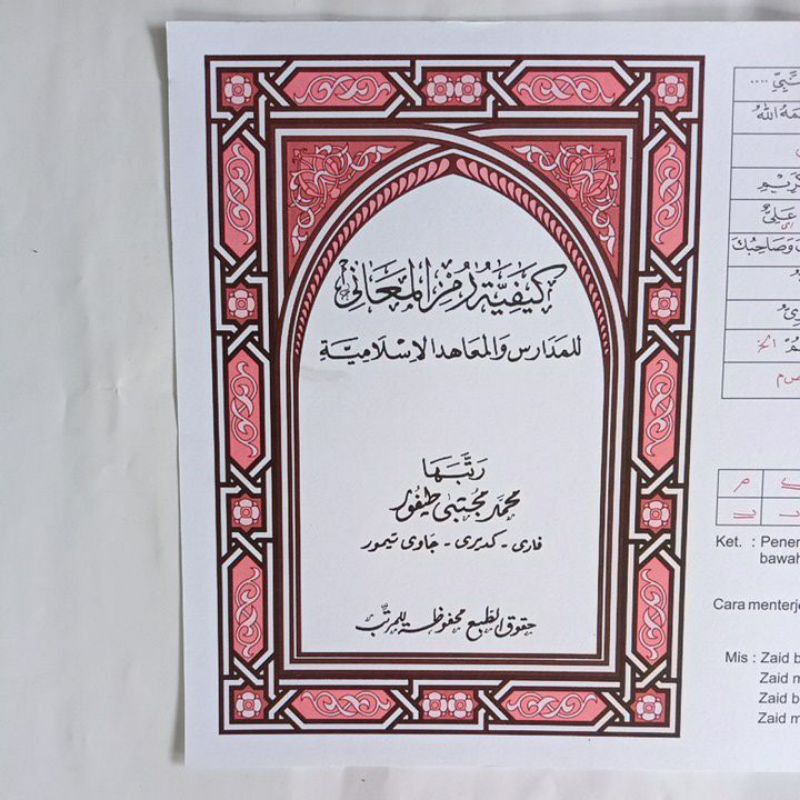 كَيْفِيَّةُ رُمْزِ الْمَعَانِى
للمَدَارس وَالمَعَاهد الإِسْلَامِيَّة
رَتَّبَهَا
محمد مجتبى طيفور
فارى - كديرى - جاوى تيمور
حقوق الطبع محفوظة للمرتّب
عَلِيٌّ
وَصَاحِبُكَ
الخ
Ket. : Pener
bawah
Cara menterje
Mis : Zaid b
Zaid m
Zaid b
Zaid m